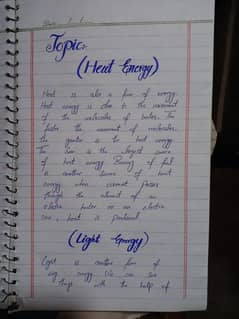 Topic:
(Heat Energy)
Heat is also a form of energy.
Heat energy is due to the movement
of the molecules of bodies. The
faster the movement of molecules,
the greater is the heat energy.
The sun is the largest source
of heat energy. Burning of fuel
is another source of heat
energy when current passes
through the element of an
electric heater or an electric
iron, heat is produced
(Light Energy)
Light is another form of
energy. We can see
things with the help of